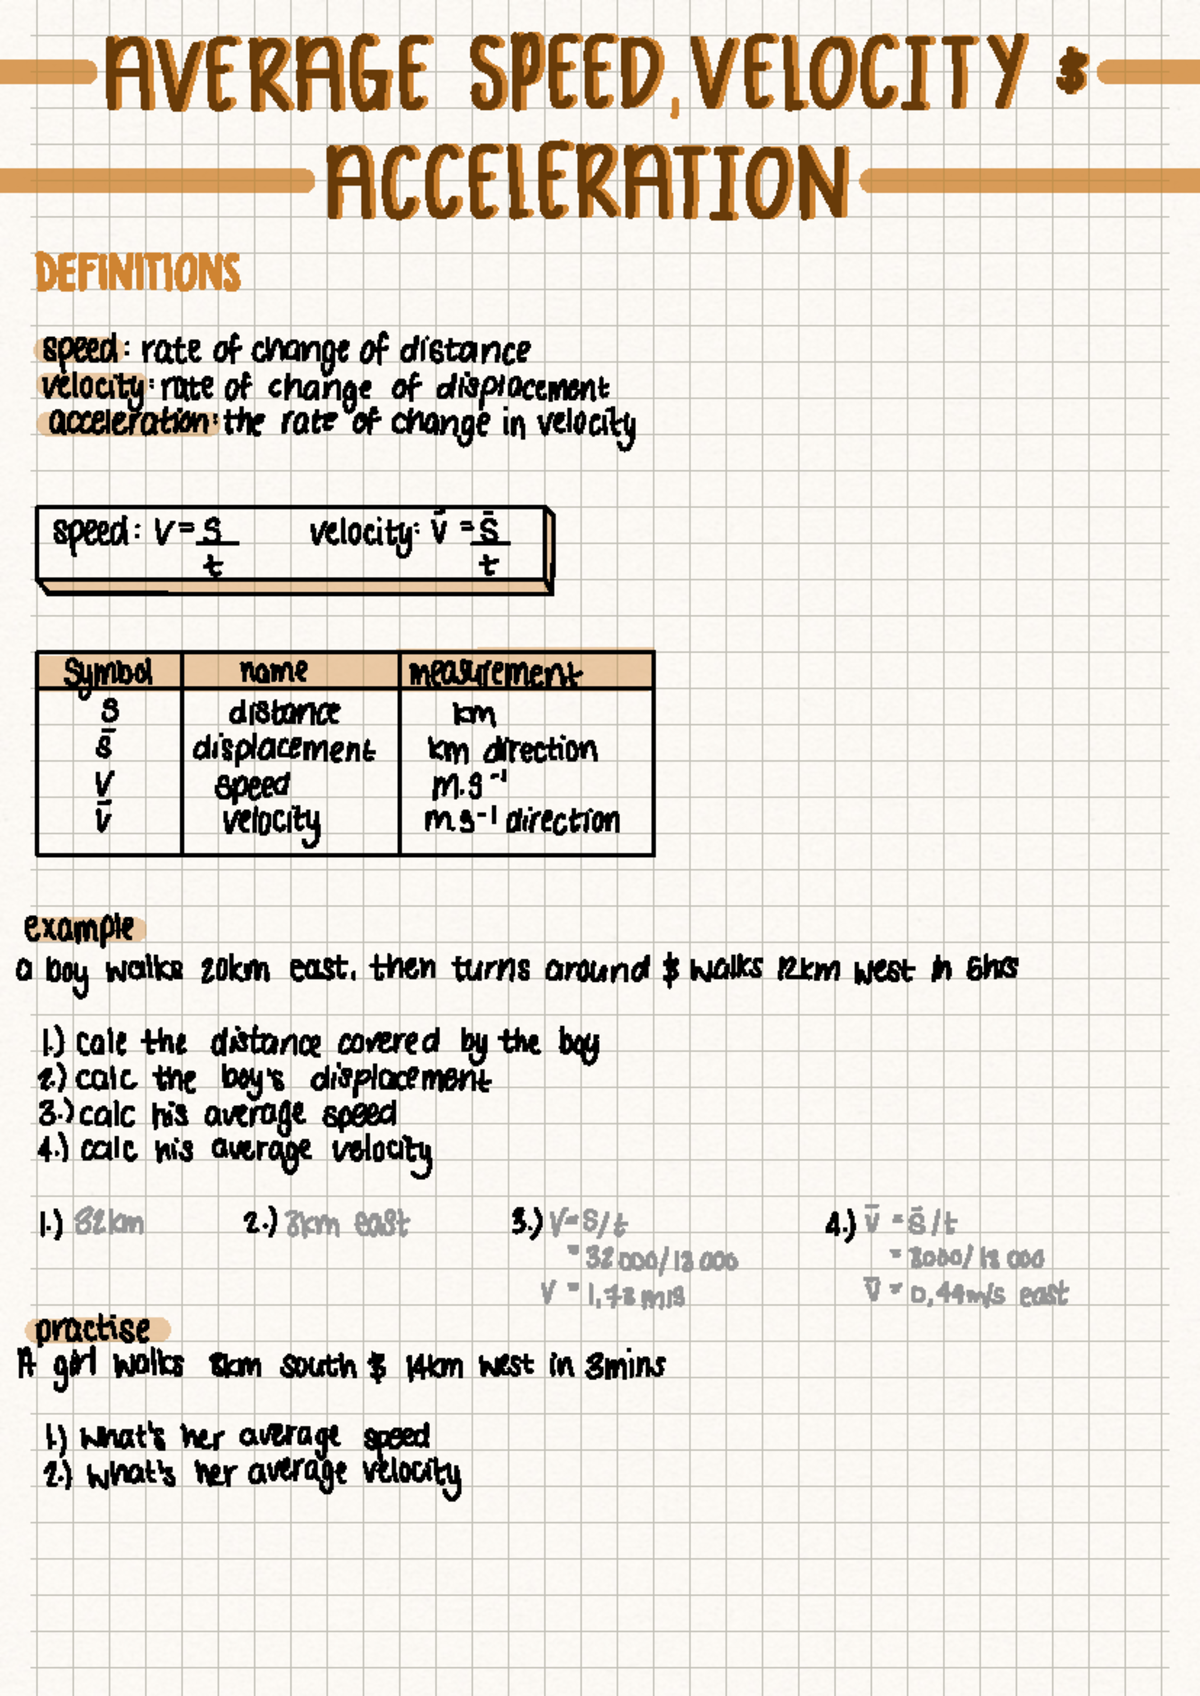 AVERAGE SPEED, VELOCITY &
ACCELERATION
DEFINITIONS
speed: rate of change of distance
velocity: rate of change of displacement
acceleration: the rate of change in velocity
speed: V = S/t velocity: v̄ = s̄/t
Symbol name measurement
S distance km
s̄ displacement km direction
V speed m.s⁻¹
v̄ velocity m.s⁻¹ direction
example
a boy walks 20km east, then turns around & walks 12km west in 5hrs
1.) calc the distance covered by the boy
2.) calc the boy's displacement
3.) calc his average speed
4.) calc his average velocity
1.) 32km 2.) 8km east 3.) V=S/t 4.) v̄ = s̄/t
= 32 000/18 000 = 8000/18 000
V = 1,78 m/s v̄ = 0,44m/s east
practise
A girl walks 8km south & 14km west in 3mins
1.) What's her average speed
2.) What's her average velocity